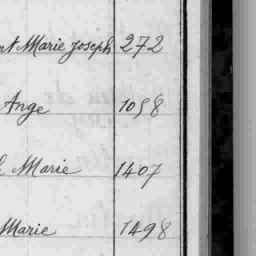 Marie joseph 272
Ange 1098
Marie 1407
Marie 1498